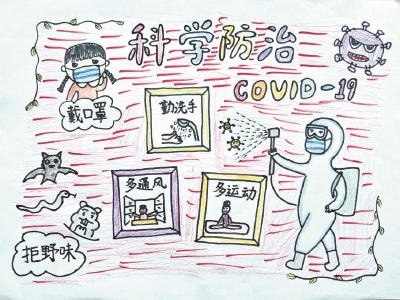 科学防治
COVID-19
戴口罩
勤洗手
多通风
多运动
拒野味